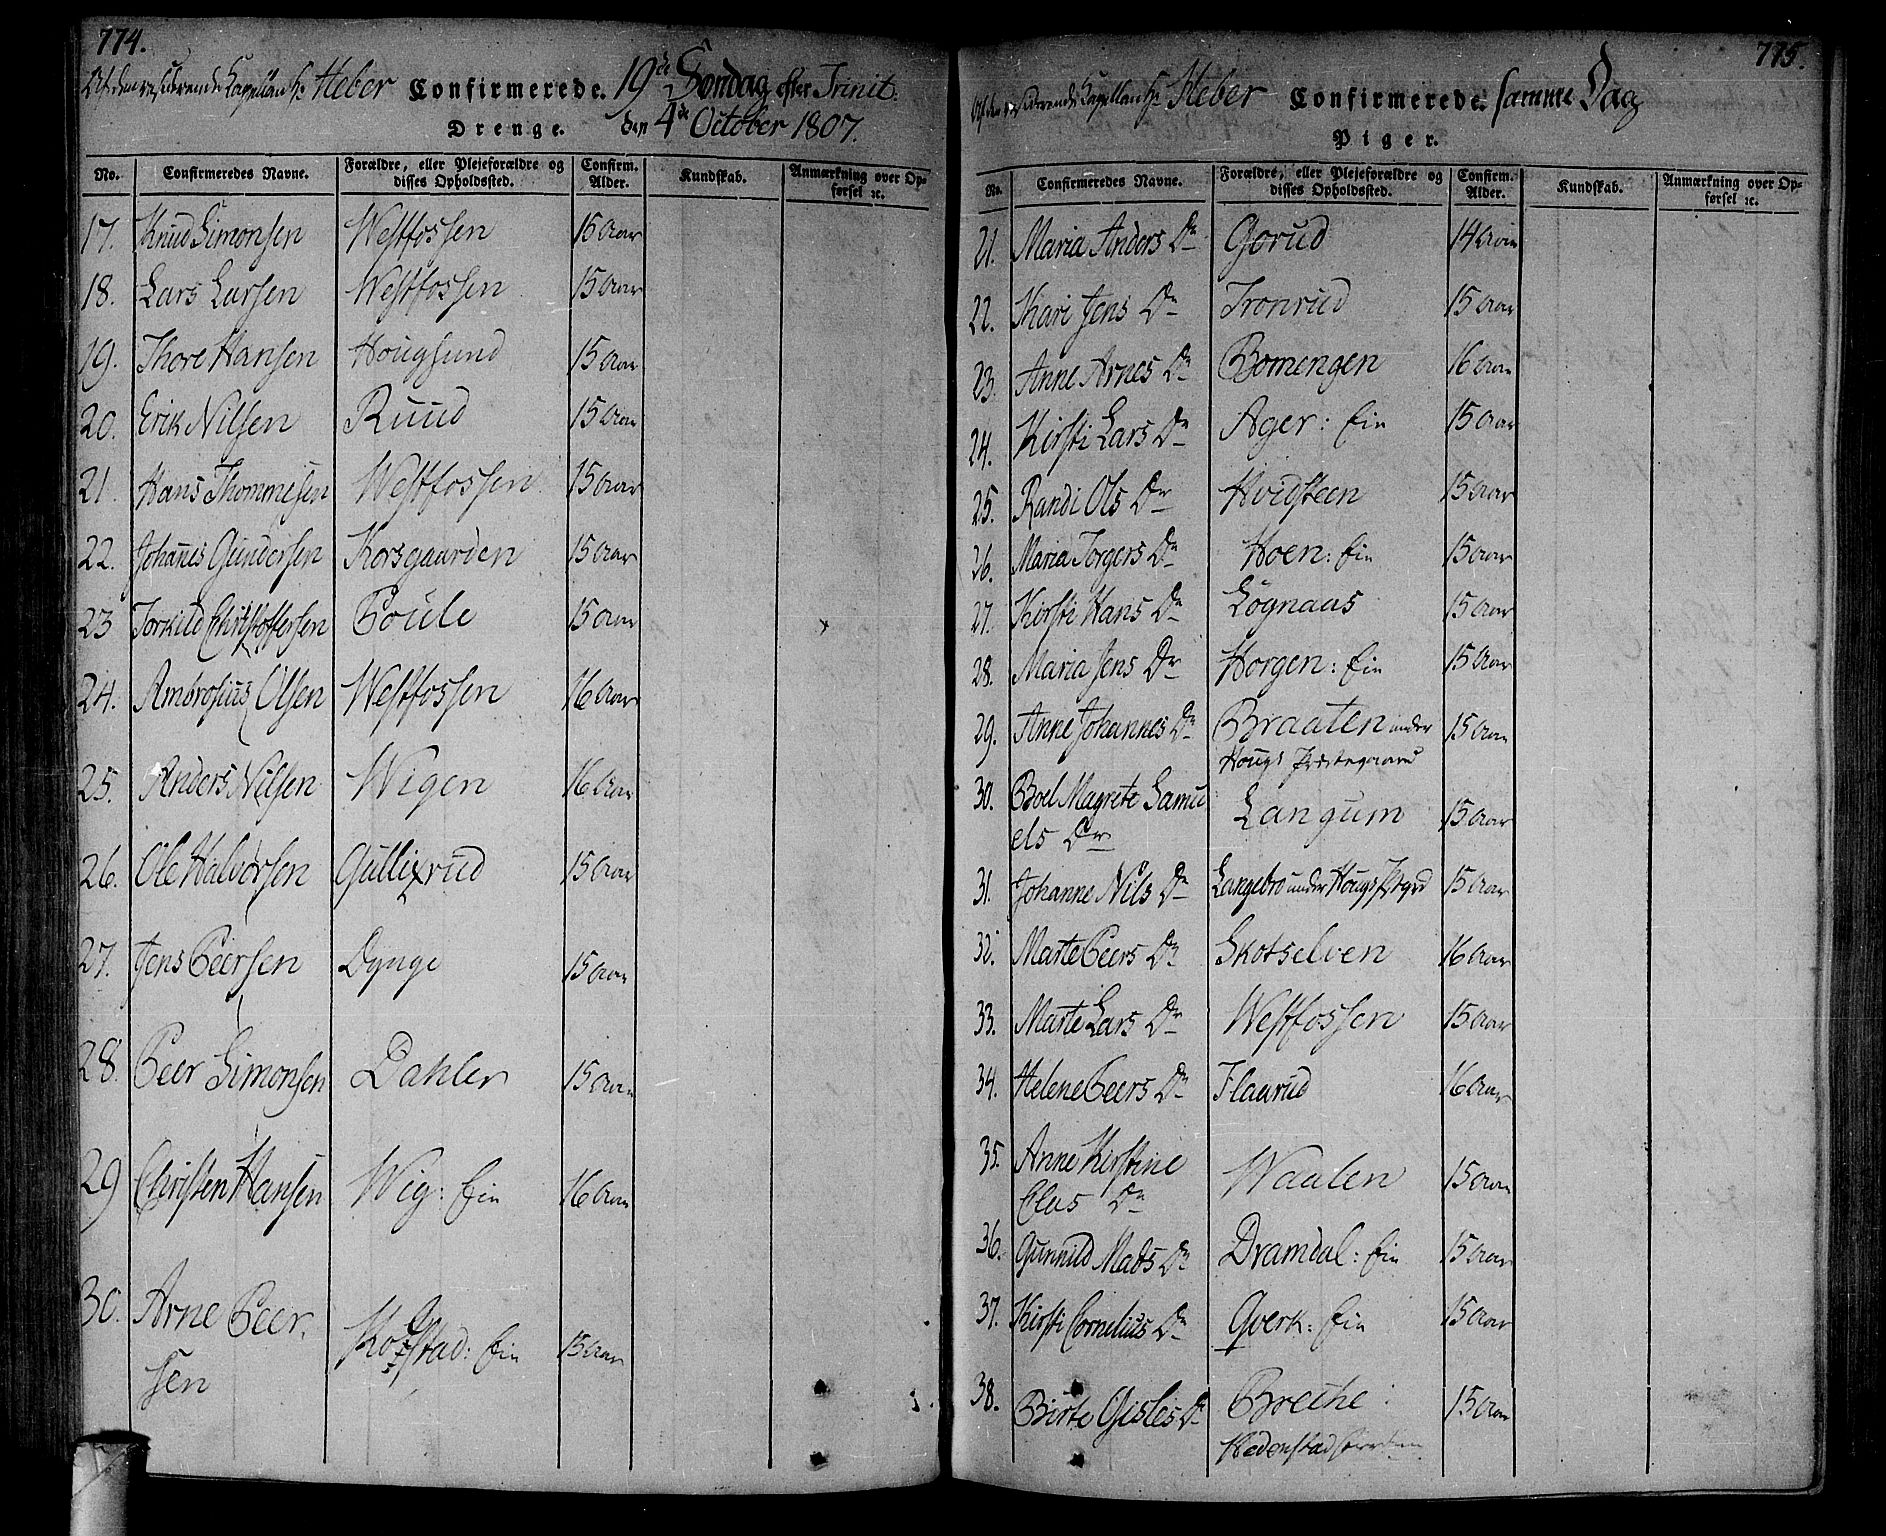 774.
Af den residerende Capellan Hr Heber Confirmerede. 19de Søndag efter Trinit.
Drenge. den 4de October 1807.
No. Confirmeredes Navne. Forældre, eller Plejeforældre og disses Opholdssted. Confirm. Alder. Kundskab. Anmærkning over Opførsel ꝛc.
17. Knud Simonsen Westfossen 15 Aar
18. Lars Larsen Westfossen 15 Aar
19. Thore Hansen Hougsund 15 Aar
20. Erik Nilsen Ruud 15 Aar
21. Hans Thommesen Westfossen 15 Aar
22. Johannes Gundersen Korsgaarden 15 Aar
23 Torkild Christoffersen Foule 15 Aar
24. Ambrosius Olsen Westfossen 16 Aar
25. Anders Nilsen Wigen 16 Aar
26. Ole Halvorsen Gullixrud 15 Aar
27. Jens Peersen Dynge 15 Aar
28. Peer Simonsen Dahler 15 Aar
29 Christen Hansen Wig: Ein 16 Aar
30. Arne Peer
sen : Ein 15 Aar
775.
Af den residerende Capellan Hr Heber Confirmerede. samme Dag
Piger.
No. Confirmeredes Navne. Forældre, eller Plejeforældre og disses Opholdssted. Confirm. Alder. Kundskab. Anmærkning over Opførsel ꝛc.
21. Maria Anders Dr Gorud 14 Aar
22. Kari Jens Dr Tronrud 15 Aar
23. Anne Arnes Dr Bomengen 16 Aar
24. Kirsti Lars Dr Ager: Ein 15 Aar
25. Randi Ols Dr Hvidsteen 15 Aar
26. Maria Torgers Dr Hoen: Ein 15 Aar
27. Kirsti Hans Dr Løgnaas 15 Aar
28. Maria Jens Dr Horgen: Ein 15 Aar
29. Anne Johannes Dr Braaten under 15 Aar
Hougs Præstegaard
30. Boel Magrete Samu
els Dr Langum 15 Aar
31. Johanne Nils Dr Langebro under Hougs Pstgrd 15 Aar
32. Marte Peers Dr Skotselven 16 Aar
33. Marte Lars Dr Westfossen 15 Aar
34. Helene Peers Dr Flaarud 16 Aar
35. Anne Kirstine
Clas Dr Waalen 15 Aar
36. Gunnild Mads Dr Dramdal: Ein 15 Aar
37. Kirsti Cornelius Dr Qverk: Ein 15 Aar
38. Birte Gisles Dr Brethe: 15 Aar
Hedenstad